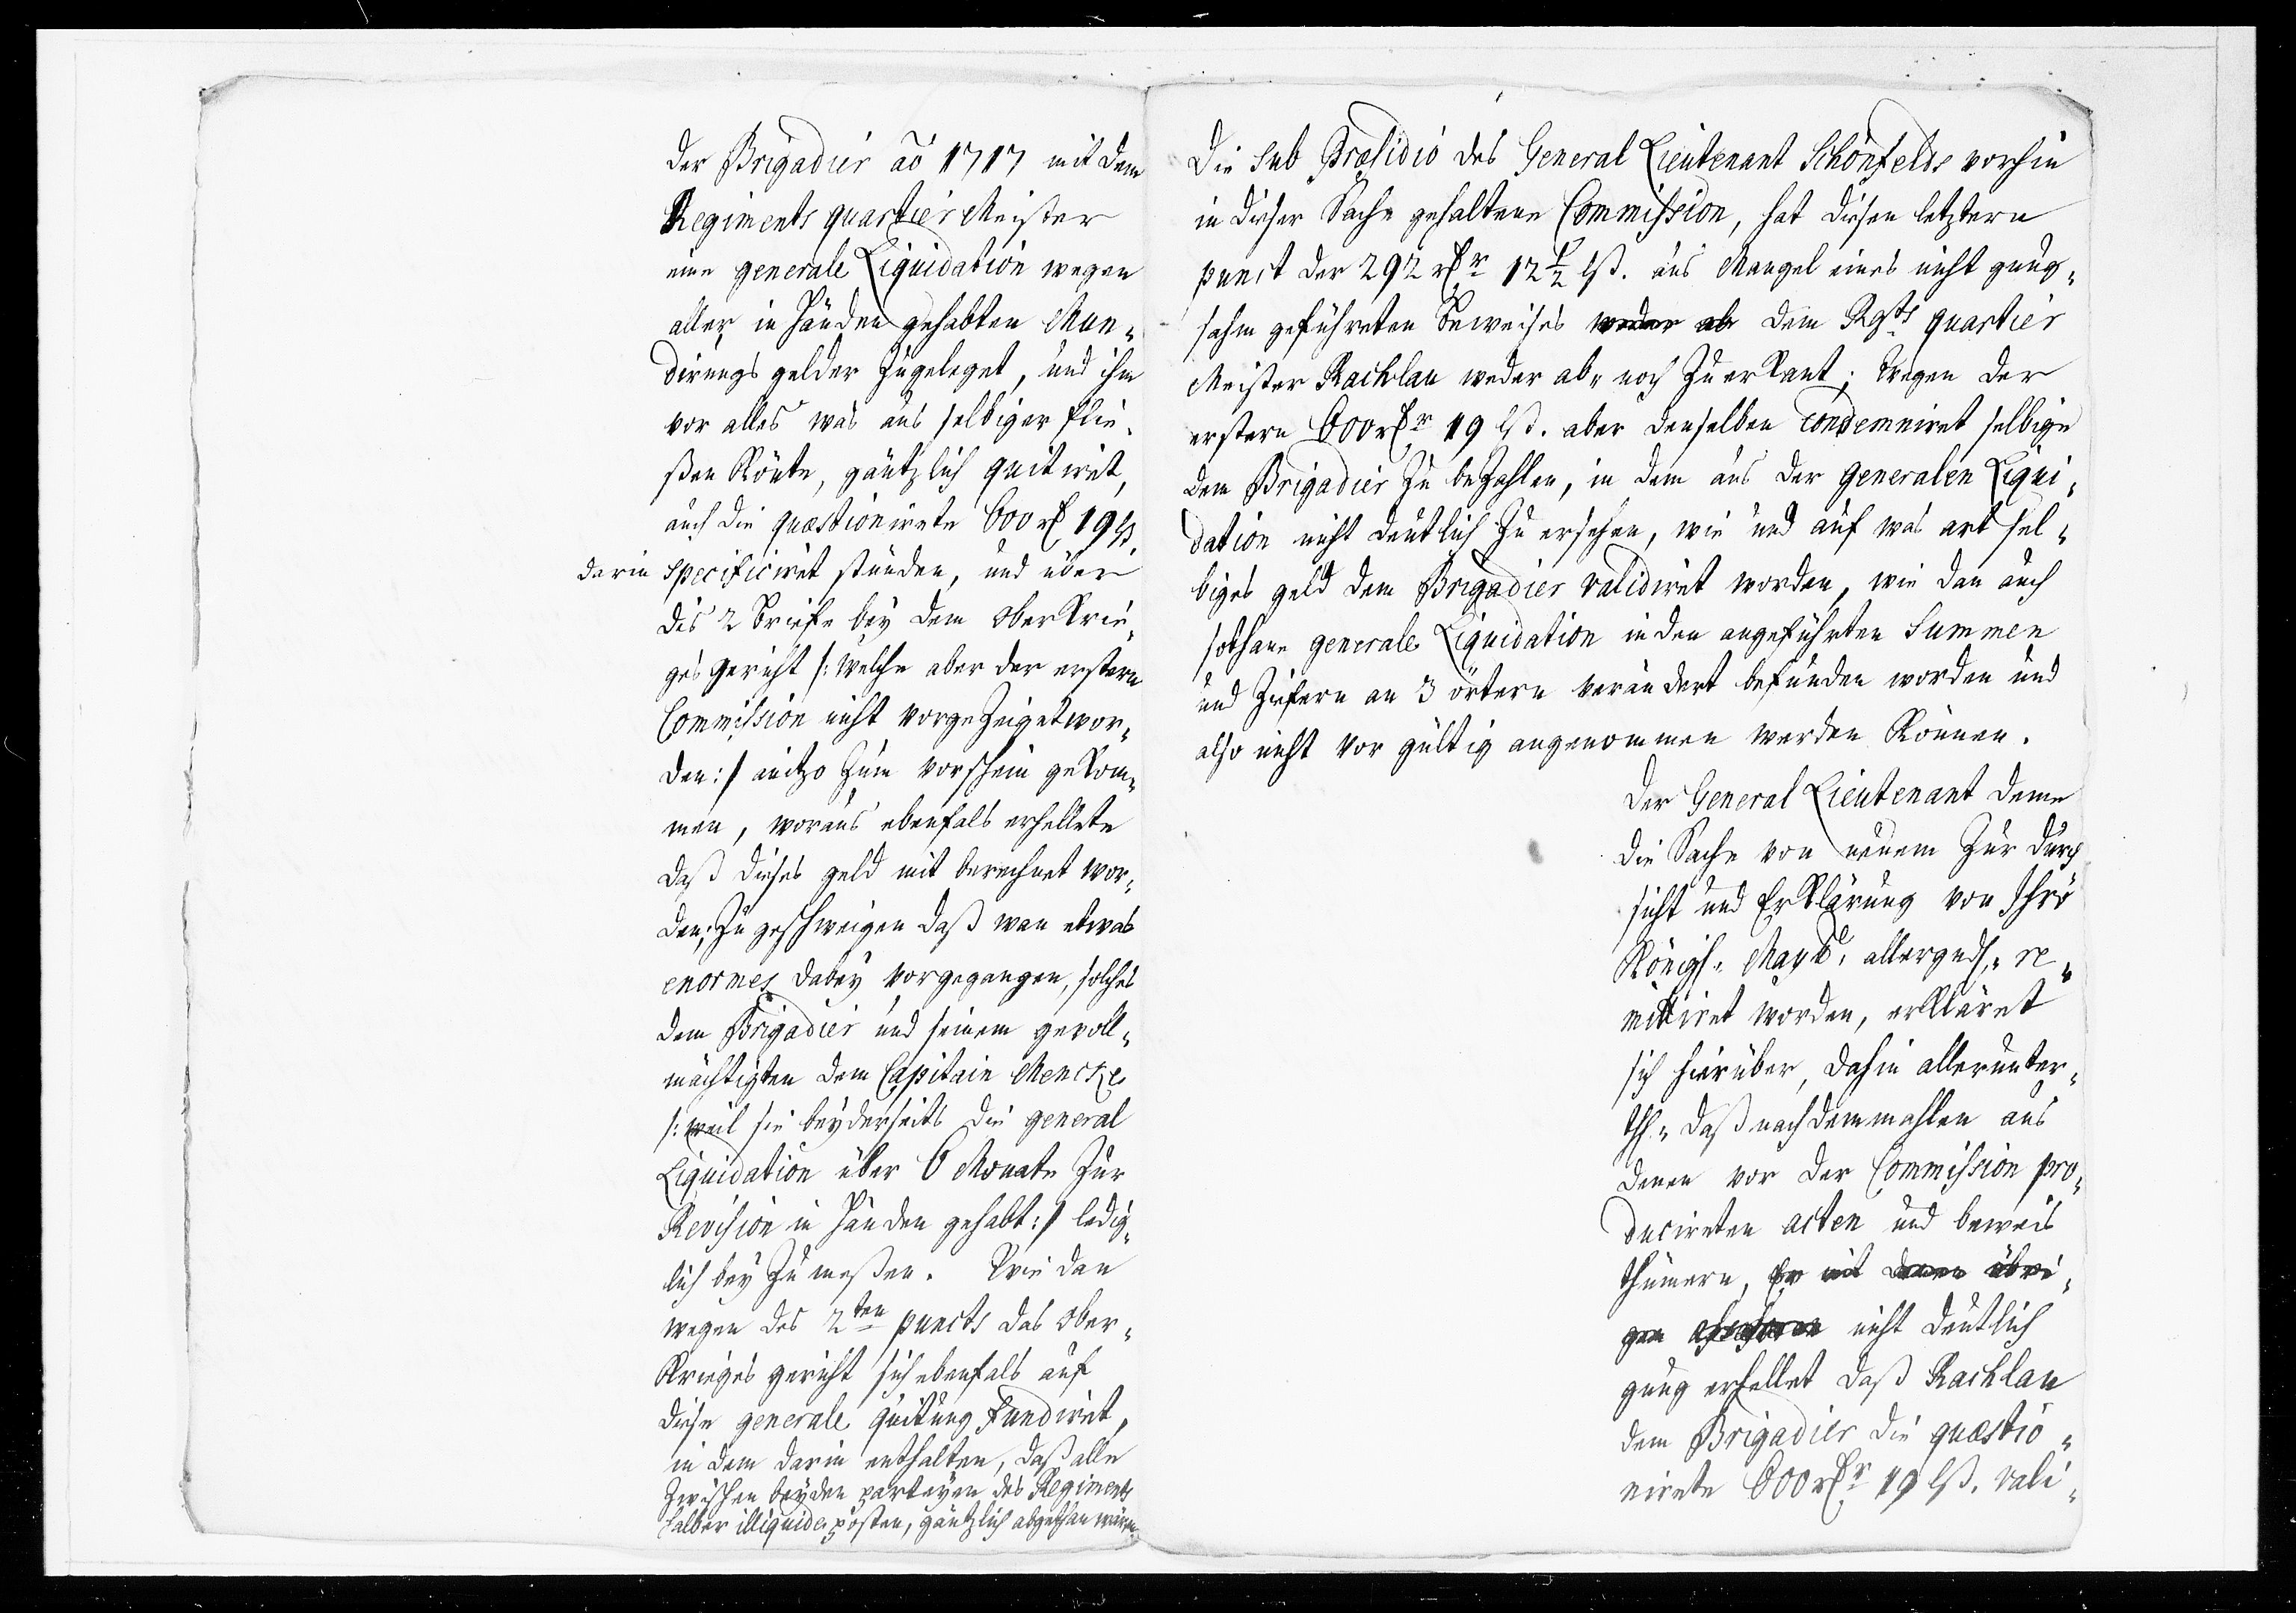 der Brigadier aõ 1717 mit dem
Regiments quartier Meister
eine generale Liquidation wegen
aller in händen gehabten Mun-
dirungs gelder zugeleget, und ihm
vor alles was aus selbiger flie-
ßen könte, gäntzlich quitiret,
auch die quæstionirete 600 rt 19 lß.
darin specificiret stünden, und über
dis 2 Briefe bey dem Ober Krie-
ges gericht /: welche aber der erstern
Commission nicht vorgezeiget wor-
den :/ anitzo zum vorschein gekom-
men, woraus ebenfals erhellete
daß dieses geld mit berechnet wor-
den; zu geschweigen daß wan etwas
enormes dabey vorgegangen, solches
dem Brigadier und seinem gevoll-
mächtigten dem Capitain Mencke
/: weil sie beyderseits die general
Liquidation über 6 Monate zur
Revision in händen gehabt :/ ledig-
lich bey zu meßen. Wie dan
wegen des 2ten puncts das Ober-
Krieges gericht sich ebenfals auf
diese generale quitung fundiret,
in dem darin enthalten, daß alle
zwischen beyden parteyen des Regiments
halber illiquide posten, gäntzlich abgethan wären.
Die sub Præsidio des General Lieutenant Schönfelds vorhin
in dieser Sache gehaltene Commission, hat diesen letztern
punct der 292 rtr 12½ lß. aus Mangel eines nicht gnug-
sahm geführeten Beweises weder ab dem Rgts quartier
Meister Rachlau weder ab- noch zuerkant; wegen der
erstern 600 rtr 19 lß. aber denselben condemniret selbige
dem Brigadier zu bezahlen, in dem aus der generalen Liqui-
dation nicht deutlich zu ersehen, wie und auf was art sel-
biges geld dem Brigadier validiret worden, wie dan auch
sothane generale Liquidation in den angeführten Summen
und Ziefern an 3 örtern verändert befunden worden und
also nicht vor gültig angenommen werden können.
Der General Lieutenant deme
die Sache von neuem zur durch
sicht und Erklärung von Ihro
Königl. Maytt. allergndst. re-
mittiret worden, erkläret
sich hierüber, dahin allerunter-
thl. daß nachdemmahlen aus
denen vor der Commission pro-
ducireten acten und beweis
thümern, Er mit denen übri-
gen nicht deutlich
gnug erhellet daß Rachlau
dem Brigadier die quæstio-
nirete 600 rtr 19 lß. vali-